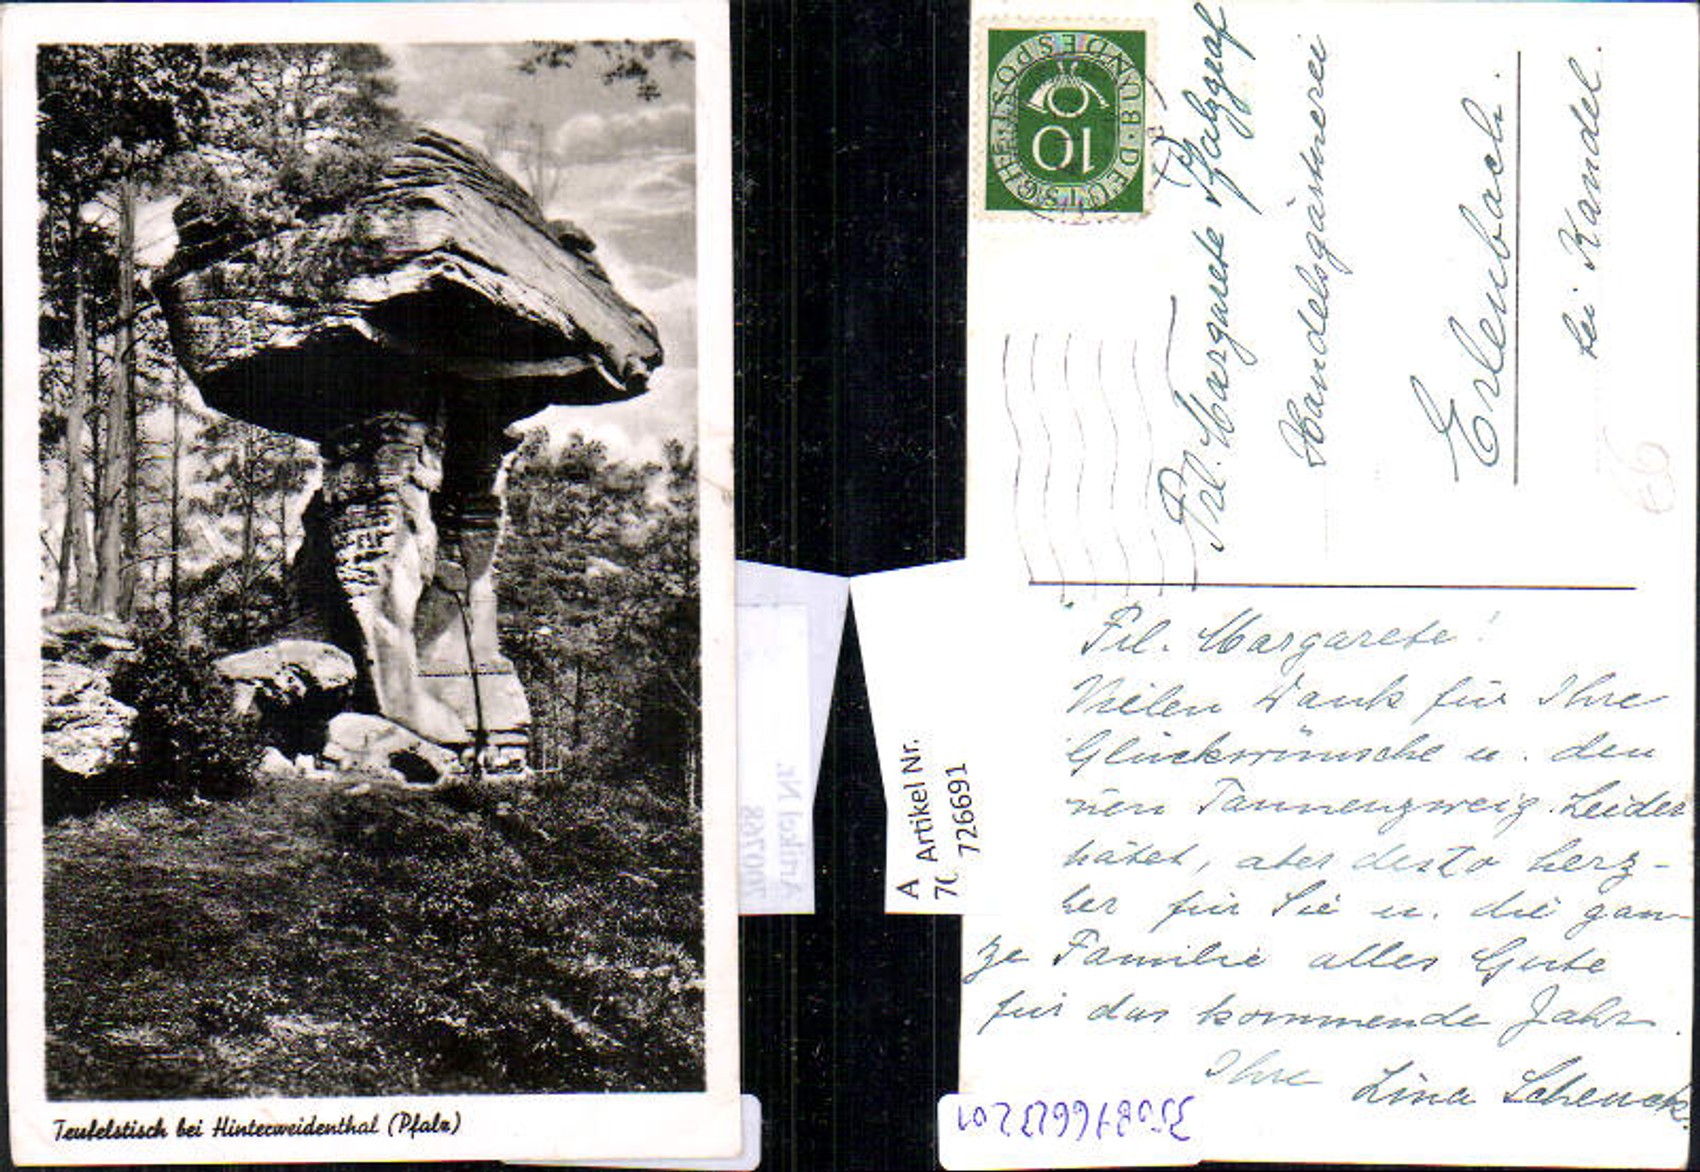 Teufelstisch bei Hinterweidenthal (Pfalz)
DEUTSCHE BUNDESPOST
10
Frl. Margarete Pfalzgraf
Handelsgärtnerei
Erlenbach.
bei Kandel.
Frl. Margarete!
Vielen Dank für Ihre
Glückwünsche u. den
Tannenzweig. Leider
aber desto herz-
für Sie u. die gan
ze Familie alles Gute
für das kommende Jahr.
Ihre Lina Schenck.
A
70
Artikel Nr.
726691
Artikel Nr.
700768